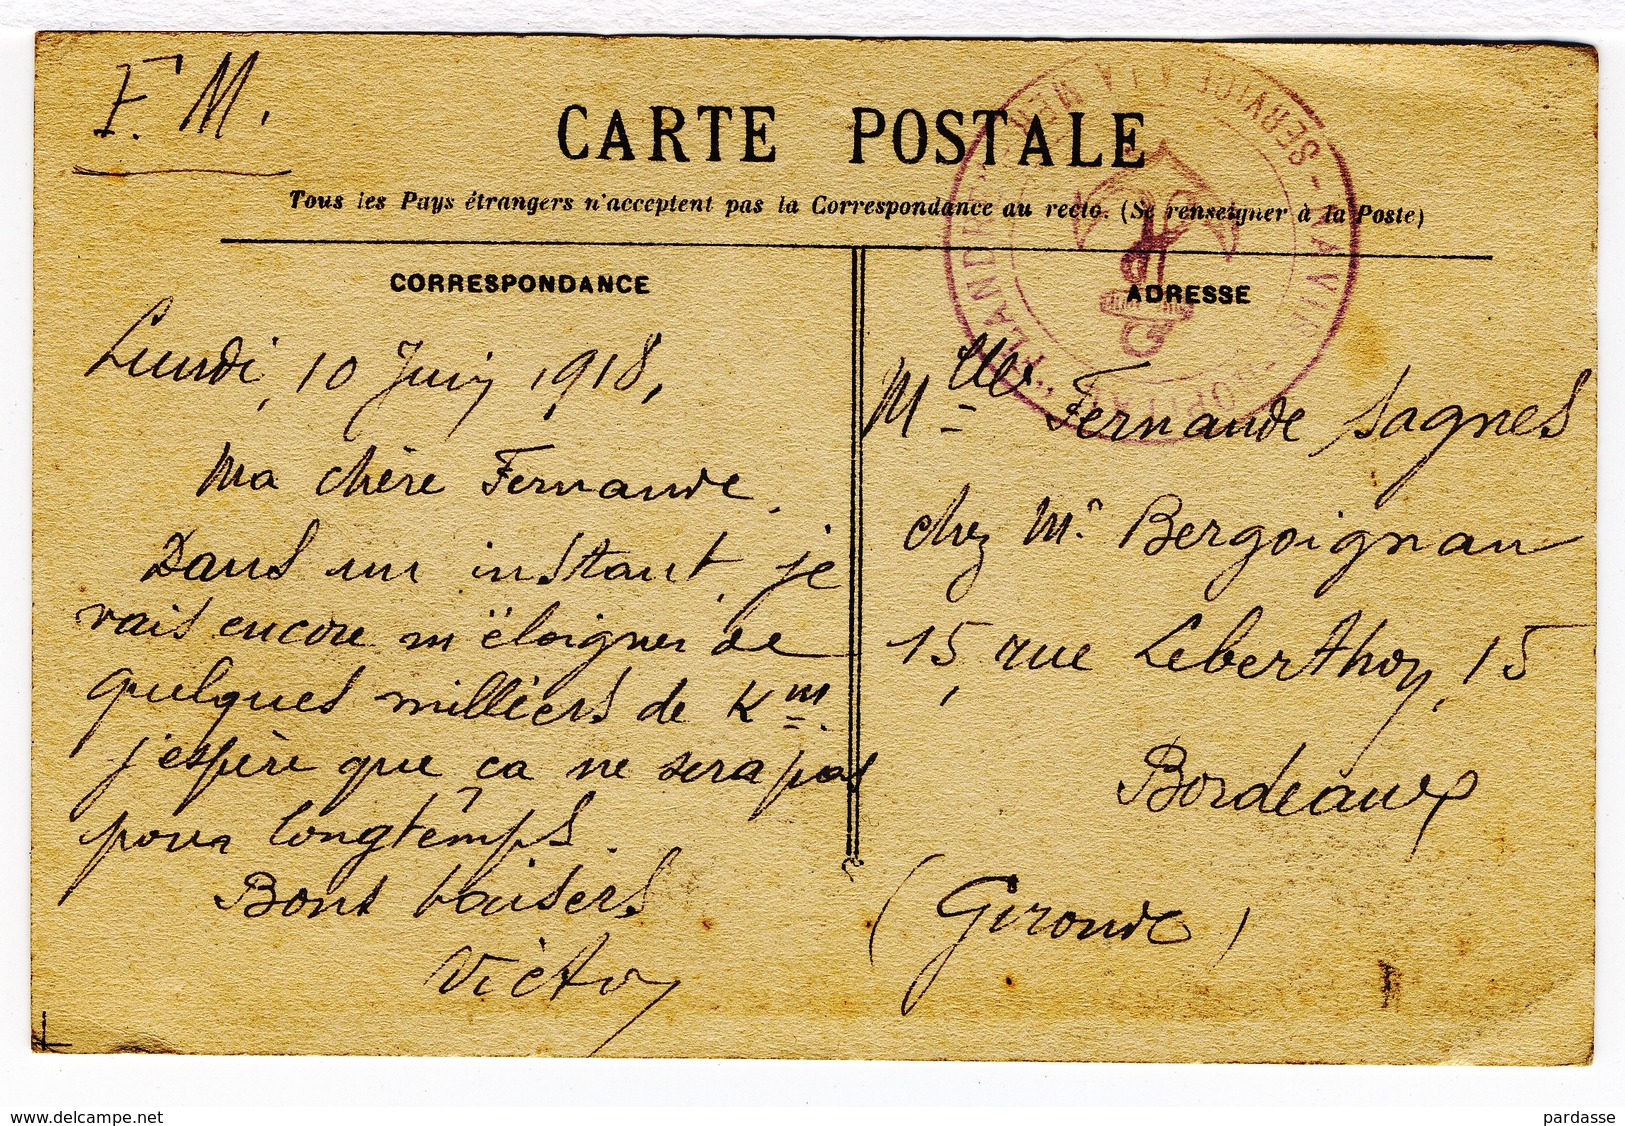 F. M.
CARTE POSTALE
Tous les Pays étrangers n'acceptent pas la Correspondance au recto. (Se renseigner à la Poste)
CORRESPONDANCE
Lundi, 10 Juin 1918,
Ma chère Fernande,
Dans un instant, je
vais encore m'éloigner de
quelques milliers de Km.
j'espère que ça ne sera pas
pour longtemps.
Bons baisers
Victor
ADRESSE
Mlle Fernande Sagnes
chez Mr Bergoignan
15, rue Leberthon, 15
Bordeaux
(Gironde)
SERVICE A LA MER - NAVIRE - HOPITAL "FLANDRE"
delcampe.net
pardasse